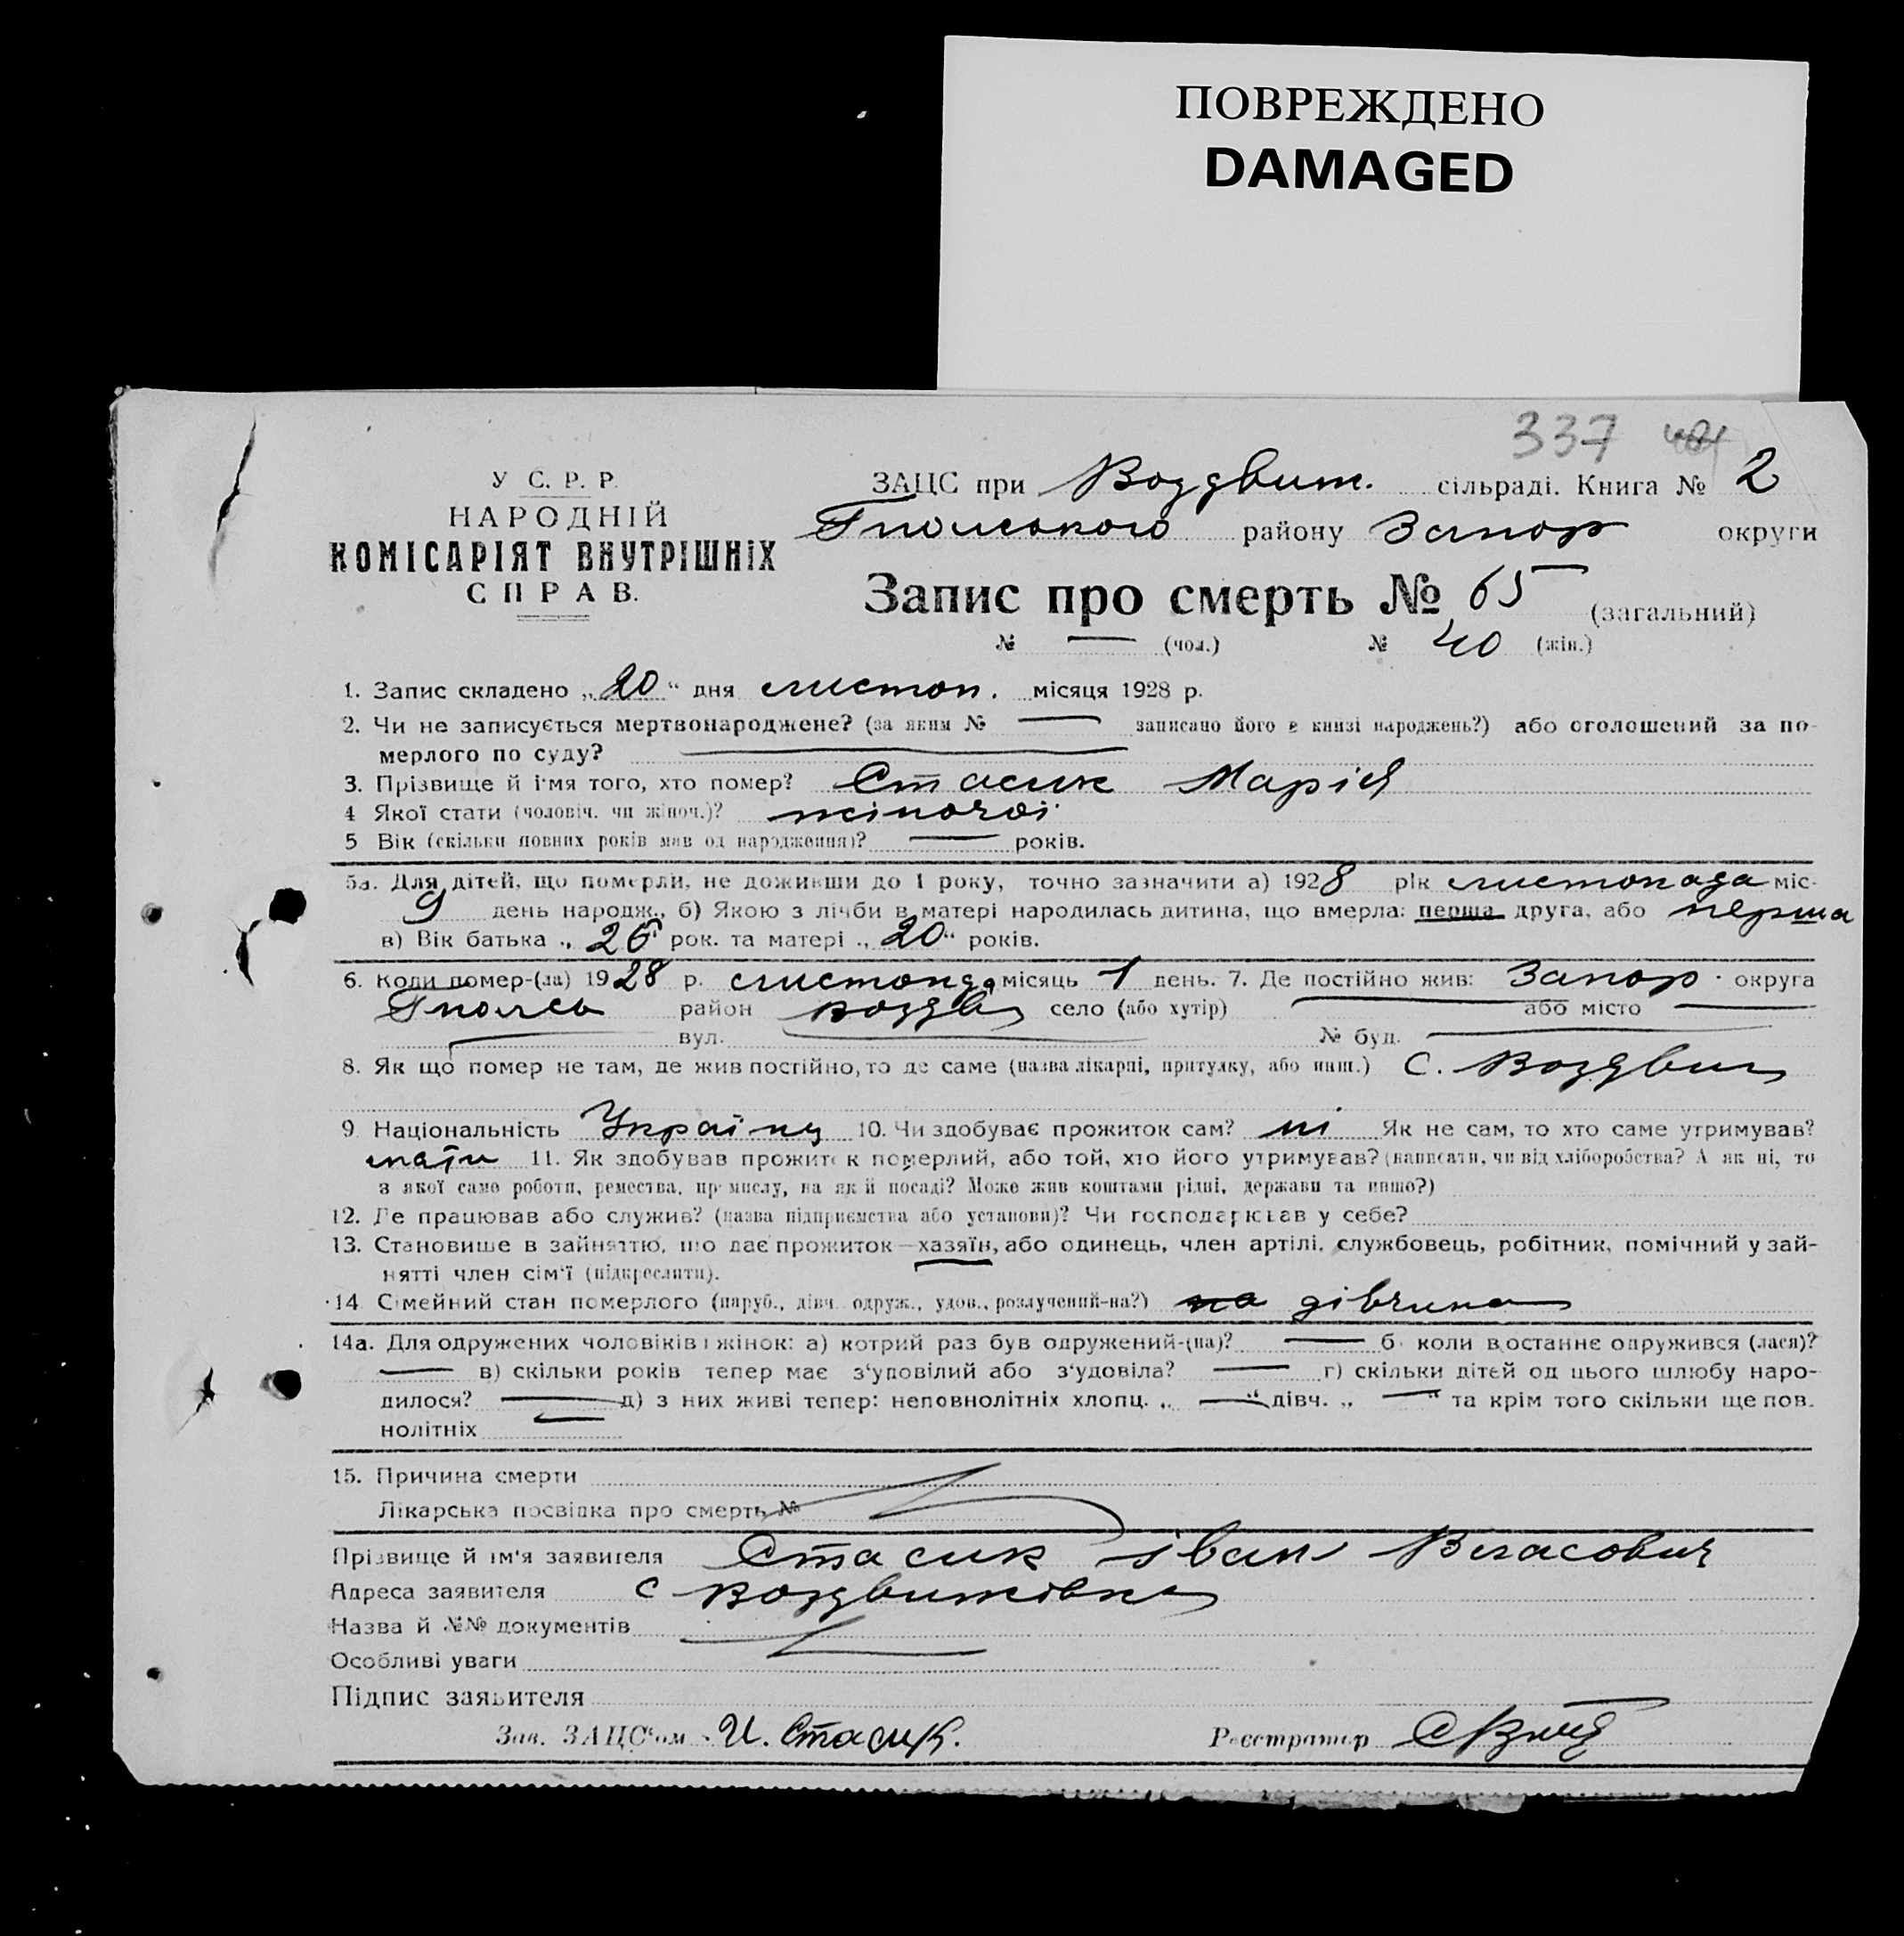 ПОВРЕЖДЕНО
DAMAGED
337
У С. Р. Р.
НАРОДНІЙ
КОМІСАРІЯТ ВНУТРІШНІХ
СПРАВ.
ЗАЦС при Воздвиж. сільраді. Книга № 2
району Запор округи
Запис про смерть № 65 (загальний)
№ — (чол.) № 40 (жін.)
1. Запис складено „20“ дня листоп. місяця 1928 р.
2. Чи не записується мертвонароджене? (за яким № — записано його в книзі народжень?) або оголошений за по-
мерлого по суду? —
3. Прізвище й ім'я того, хто помер? Стасик Марія
4 Якої стати (чоловіч. чи жіноч.)? жіночої
5 Вік (скільки повних років мав од народження)? — років.
5а. Для дітей, що померли, не доживши до 1 року, точно зазначити а) 1928 рік листопада міс.
9 день народж., б) Якою з лічби в матері народилась дитина, що вмерла: перша друга, або перша
в) Вік батька „ 26 рок. та матері „ 20 “ років.
6. Коли помер-(ла) 1928 р. листопада місяць 1 день. 7. Де постійно жив: Запор. округа
район Воздв село (або хутір) — або місто —
— вул. — № буд. —
8. Як що помер не там, де жив постійно, то де саме (назва лікарні, притулку, або инш.) с. Воздвиж
9 Національність Українц 10. Чи здобуває прожиток сам? ні Як не сам, то хто саме утримував?
мати 11. Як здобував прожиток померлий, або той, хто його утримував? (написати, чи від хліборобства? А як ні, то
з якої само роботи, ремества, промислу, на якій посаді? Може жив коштами рідні, держави та иншо?)
12. Де працював або служив? (назва підприємства або установи)? Чи господарював у себе?
13. Становище в зайняттю, що дає прожиток—хазяїн, або одинець, член артілі, службовець, робітник, помічний у зай-
нятті член сім'ї (підкреслити).
14 Сімейний стан померлого (паруб., дівч. одруж., удов., розлучений-на?) дівчина
14а. Для одружених чоловіків і жінок: а) котрий раз був одружений-(на)? — б. коли востаннє одружився (лася)?
— в) скільки років тепер має з'уповілий або з'удовіла? — г) скільки дітей од цього шлюбу наро-
дилося? — д) з них живі тепер: неповнолітніх хлопц. „ —“ дівч. „ —“ та крім того скільки ще пов.
нолітніх —
15. Причина смерти
Лікарська посвідка про смерть №
Прізвище й ім'я заявителя Стасик Іван Власович
Адреса заявителя с Воздвижівка
Назва й №№ документів
Особливі уваги
Підпис заявителя
Зав. ЗАЦС'ом И. Стасик. Реєстратор